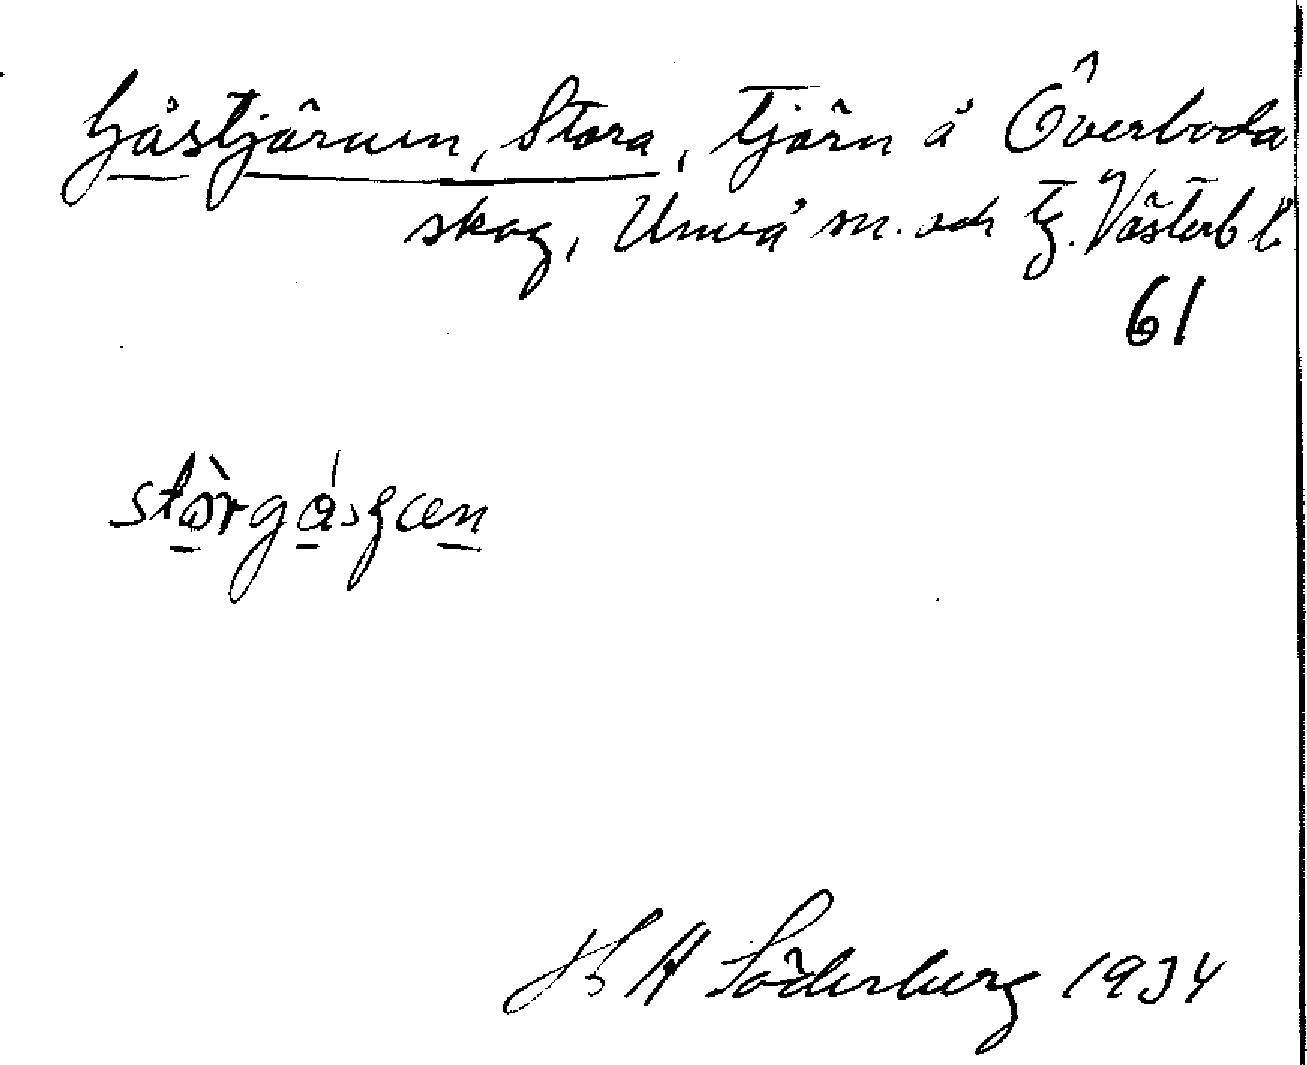 Gåstjärnen, Stora, tjärn å Överboda
skog, Umeå sn. och tg. Västerb l.
61
H A Söderberg 1934